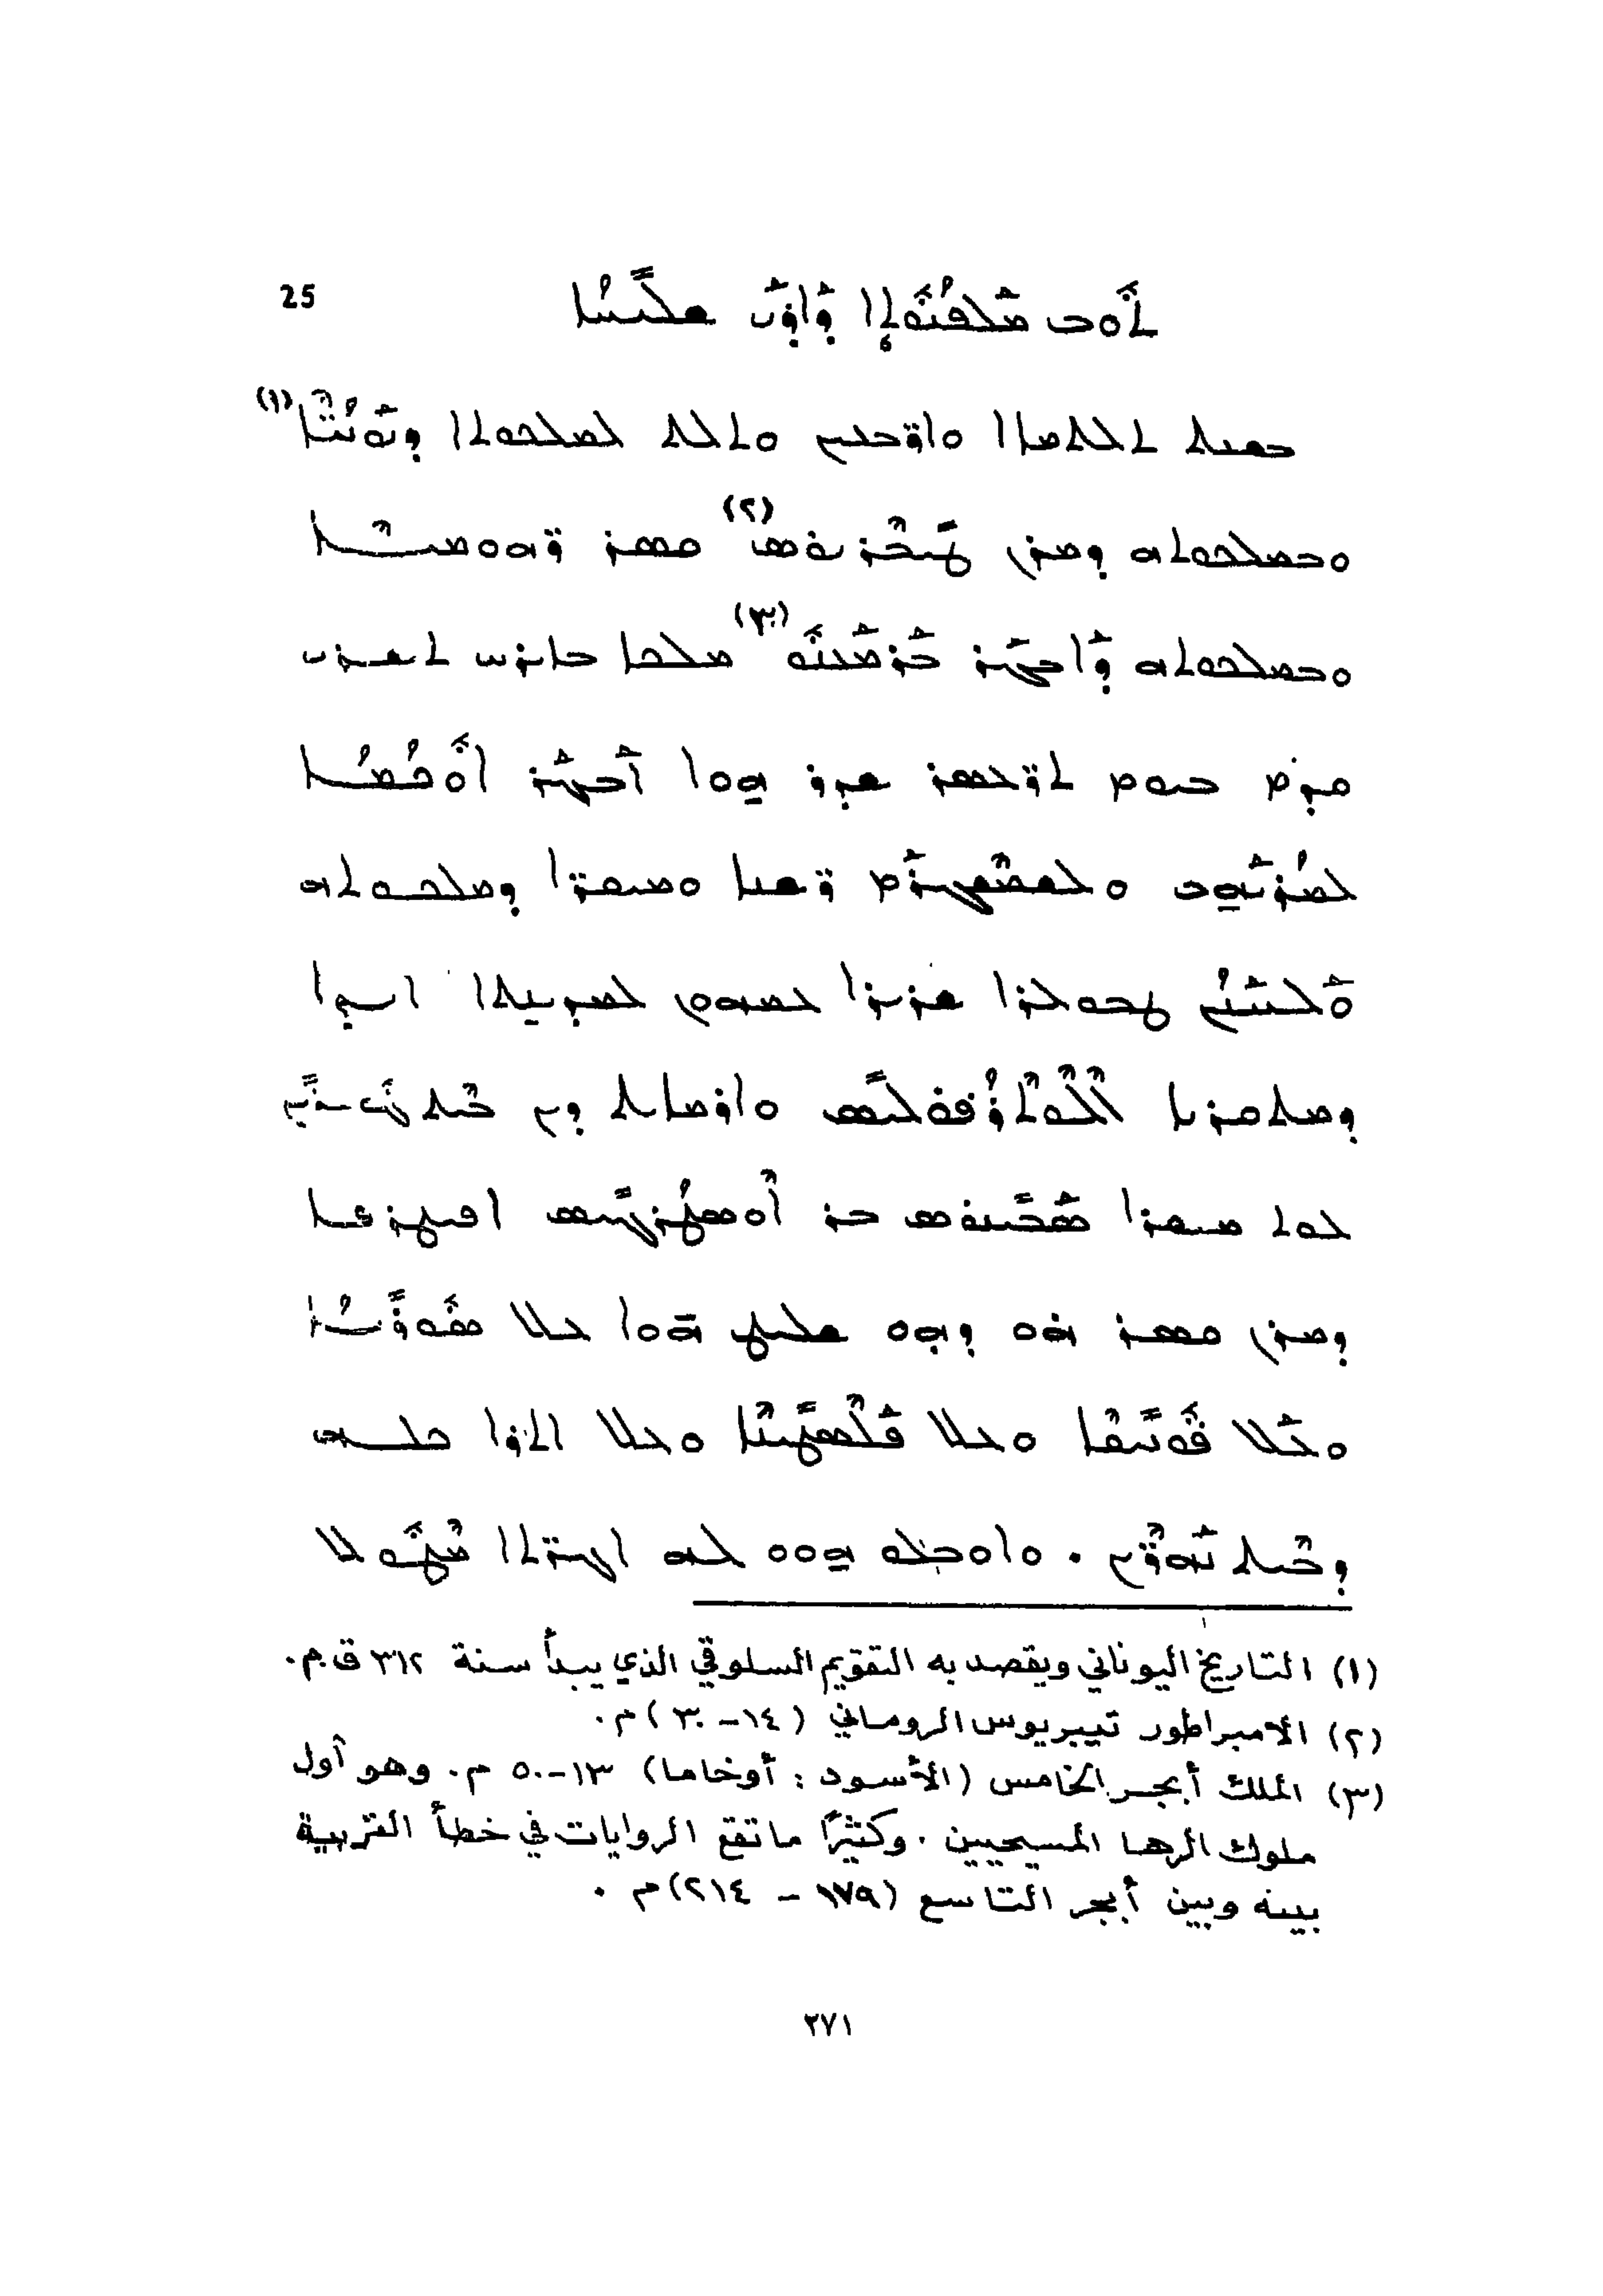 25
ܬܘܒ ܡܠܦܢܘܬܐ ܕܐܕܝ ܫܠܝܚܐ
ܒܫܢܬ ܬܠܬܡܐܐ ܘܐܪܒܥܝܢ ܘܬܠܬ ܠܡܠܟܘܬܐ ܕܝܘܢܝܐ (١)
ܘܒܡܠܟܘܬܗ ܕܡܪܢ ܛܝܒܪܝܘܣ (٢) ܩܣܪ ܪܗܘܡܝܐ
ܘܒܡܠܟܘܬܗ ܕܐܒܓܪ ܒܪܡܥܢܘ (٣) ܡܠܟܐ ܒܐܝܪܚ ܬܫܪܝ
ܩܕܡ ܒܝܘܡ ܬܪܥܣܪ ܫܕܪ ܗܘܐ ܐܒܓܪ ܐܘܟܡܐ
ܠܡܪܝܗܒ ܘܠܫܡܫܓܪܡ ܪܫܝܐ ܘܡܝܩܪܐ ܕܡܠܟܘܬܗ
ܘܠܚܢܢ ܛܒܘܠܪܐ ܫܪܝܪܐ ܥܡܗܘܢ ܠܡܕܝܢܬܐ ܐܝܕܐ
ܕܡܬܩܪܝܐ ܐܠܘܬܪܘܦܘܠܝܣ ܘܐܪܡܐܝܬ ܕܝܢ ܒܝܬ ܓܘܒܪܝܢ
ܠܘܬ ܡܝܩܪܐ ܣܒܝܢܘܣ ܒܪ ܐܘܣܛܪܓܝܣ ܐܦܛܪܦܐ
ܕܡܪܢ ܩܣܪ ܗܘ ܕܗܘ ܫܠܝܛ ܗܘܐ ܥܠ ܣܘܪܝܐ
ܘܥܠ ܦܘܢܝܩܐ ܘܥܠ ܦܠܣܛܝܢܐ ܘܥܠ ܐܬܪܐ ܟܠܗ
ܕܒܝܬ ܢܗܪܝܢ . ܘܐܘܒܠܘ ܗܘܘ ܠܗ ܐܓܪܬܐ ܡܛܘܠ
(١) التاريخ اليوناني ويقصد به التقويم السلوقي الذي يبدأ سنة ٣١٢ ق.م.
(٢) الامبراطور تيبريوس الروماني (١٤-٣٠) م.
(٣) الملك أبجر الخامس (الأسود : أوخاما) ١٣-٥٠ م. وهو أول
ملوك الرها المسيحيين . وكثيرًا ما تقع الروايات في خطأ القربية
بينه وبين أبجر التاسع (١٧٩ - ٢١٤) م .
٢٧١